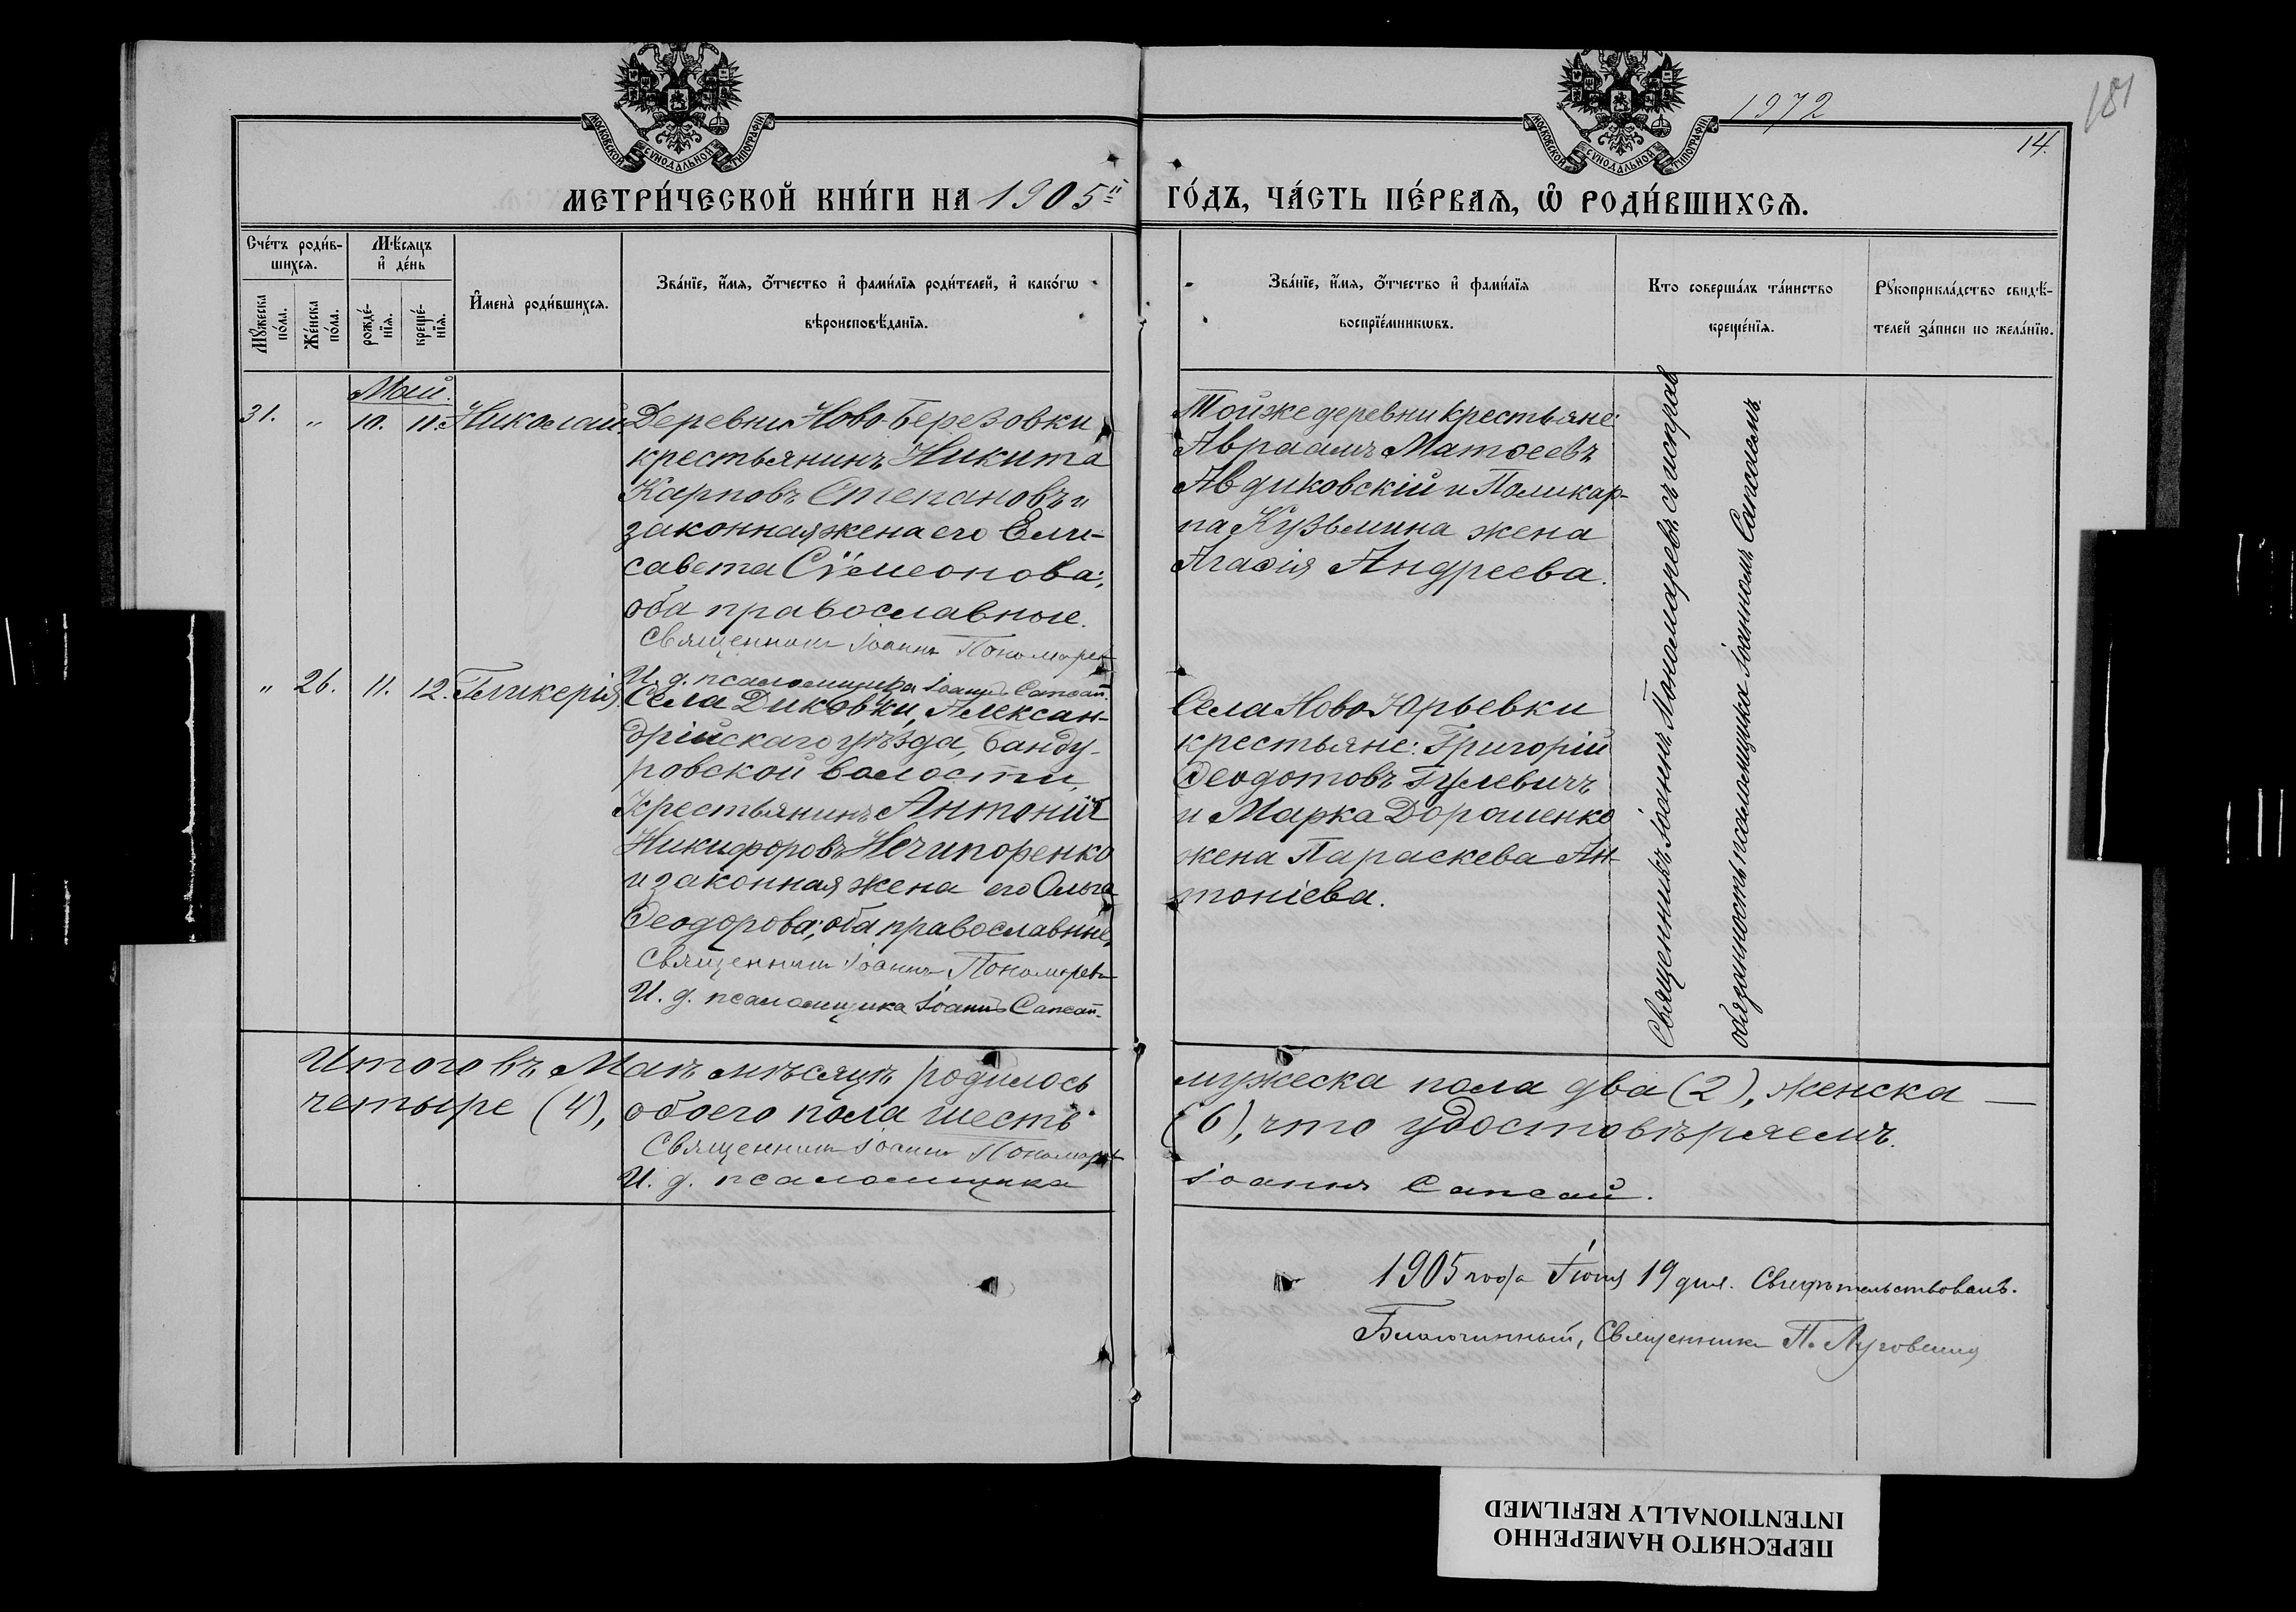 1972
181
14.
МОСКОВСКОЙ СѴНОДАЛЬНОЙ ТИПОГРАФІИ
МОСКОВСКОЙ СѴНОДАЛЬНОЙ ТИПОГРАФІИ
МЕТРИ́ЧЕСКОЙ КНИ́ГИ НА 1905й ГО́ДЪ, ЧА́СТЬ ПЕ́РВАѦ, Ѡ҆ РОДИ́ВШИХСѦ.
Сче́тъ роди́в-
шихсѧ.
Мꙋ́жеска
по́ла.
Же́нска
по́ла.
Мѣ́сѧцъ
и҆ де́нь
рожде́-
нїѧ.
креще́-
нїѧ.
И҆мена̀ роди́вшихсѧ.
Зва́нїе, и҆́мѧ, ѻ҆́тчество и҆ фами́лїѧ роди́телей, и҆ како́гѡ
вѣроисповѣ́данїѧ.
Зва́нїе, и҆́мѧ, ѻ҆́тчество и҆ фами́лїѧ
воспрїе́мникѡвъ.
Кто соверша́лъ та́инство
креще́нїѧ.
Рꙋкоприкла́дство свидѣ́-
телей за́писи по жела́нїю.
Май.
31. „ 10. 11. Николай. Деревни Ново-Березовки
крестьянинъ Никита
Карповъ Степановъ и
законная жена его Ели-
савета Сѵмеонова;
оба православные.
Священникъ Іоаннъ Пономарев
И. д. псаломщика Іоаннъ Сапсай.
Тойже деревни крестьяне:
Авраамъ Матѳеевъ
Авдиковскій и Поликар-
па Кузьмина жена
Агаѳія Андреева.
„ 26. 11. 12. Гликерія. Села Диковки, Алексан-
дрійскаго уѣзда, Банду-
ровской волости,
Крестьянинъ Антоній
Никифоровъ Нечипоренко
и законная жена его Ольга
Ѳеодорова; оба православные.
Священникъ Іоаннъ Пономаревъ
И. д. псаломщика Іоаннъ Сапсай.
Села Ново Юрьевки
крестьяне: Григорій
Ѳеодотовъ Гулевичъ
и Марка Дорошенко
жена Параскева Ан-
тоніева.
Священникъ Іоаннъ Пономаревъ съ исправ
обязанность псаломщика Іоанномъ Сапсаемъ.
Итого въ Маѣ мѣсяцѣ родилось мужеска пола два (2), женска —
четыре (4), обоего пола шесть (6), что удостовѣряемъ.
Священникъ Іоаннъ Пономарев
И. д. псаломщика Іоаннъ Сапсай.
1905 года Іюня 19 дня. Свидѣтельствовалъ.
Благочинный, Священникъ П.
ПЕРЕСНЯТО НАМЕРЕННО
INTENTIONALLY REFILMED